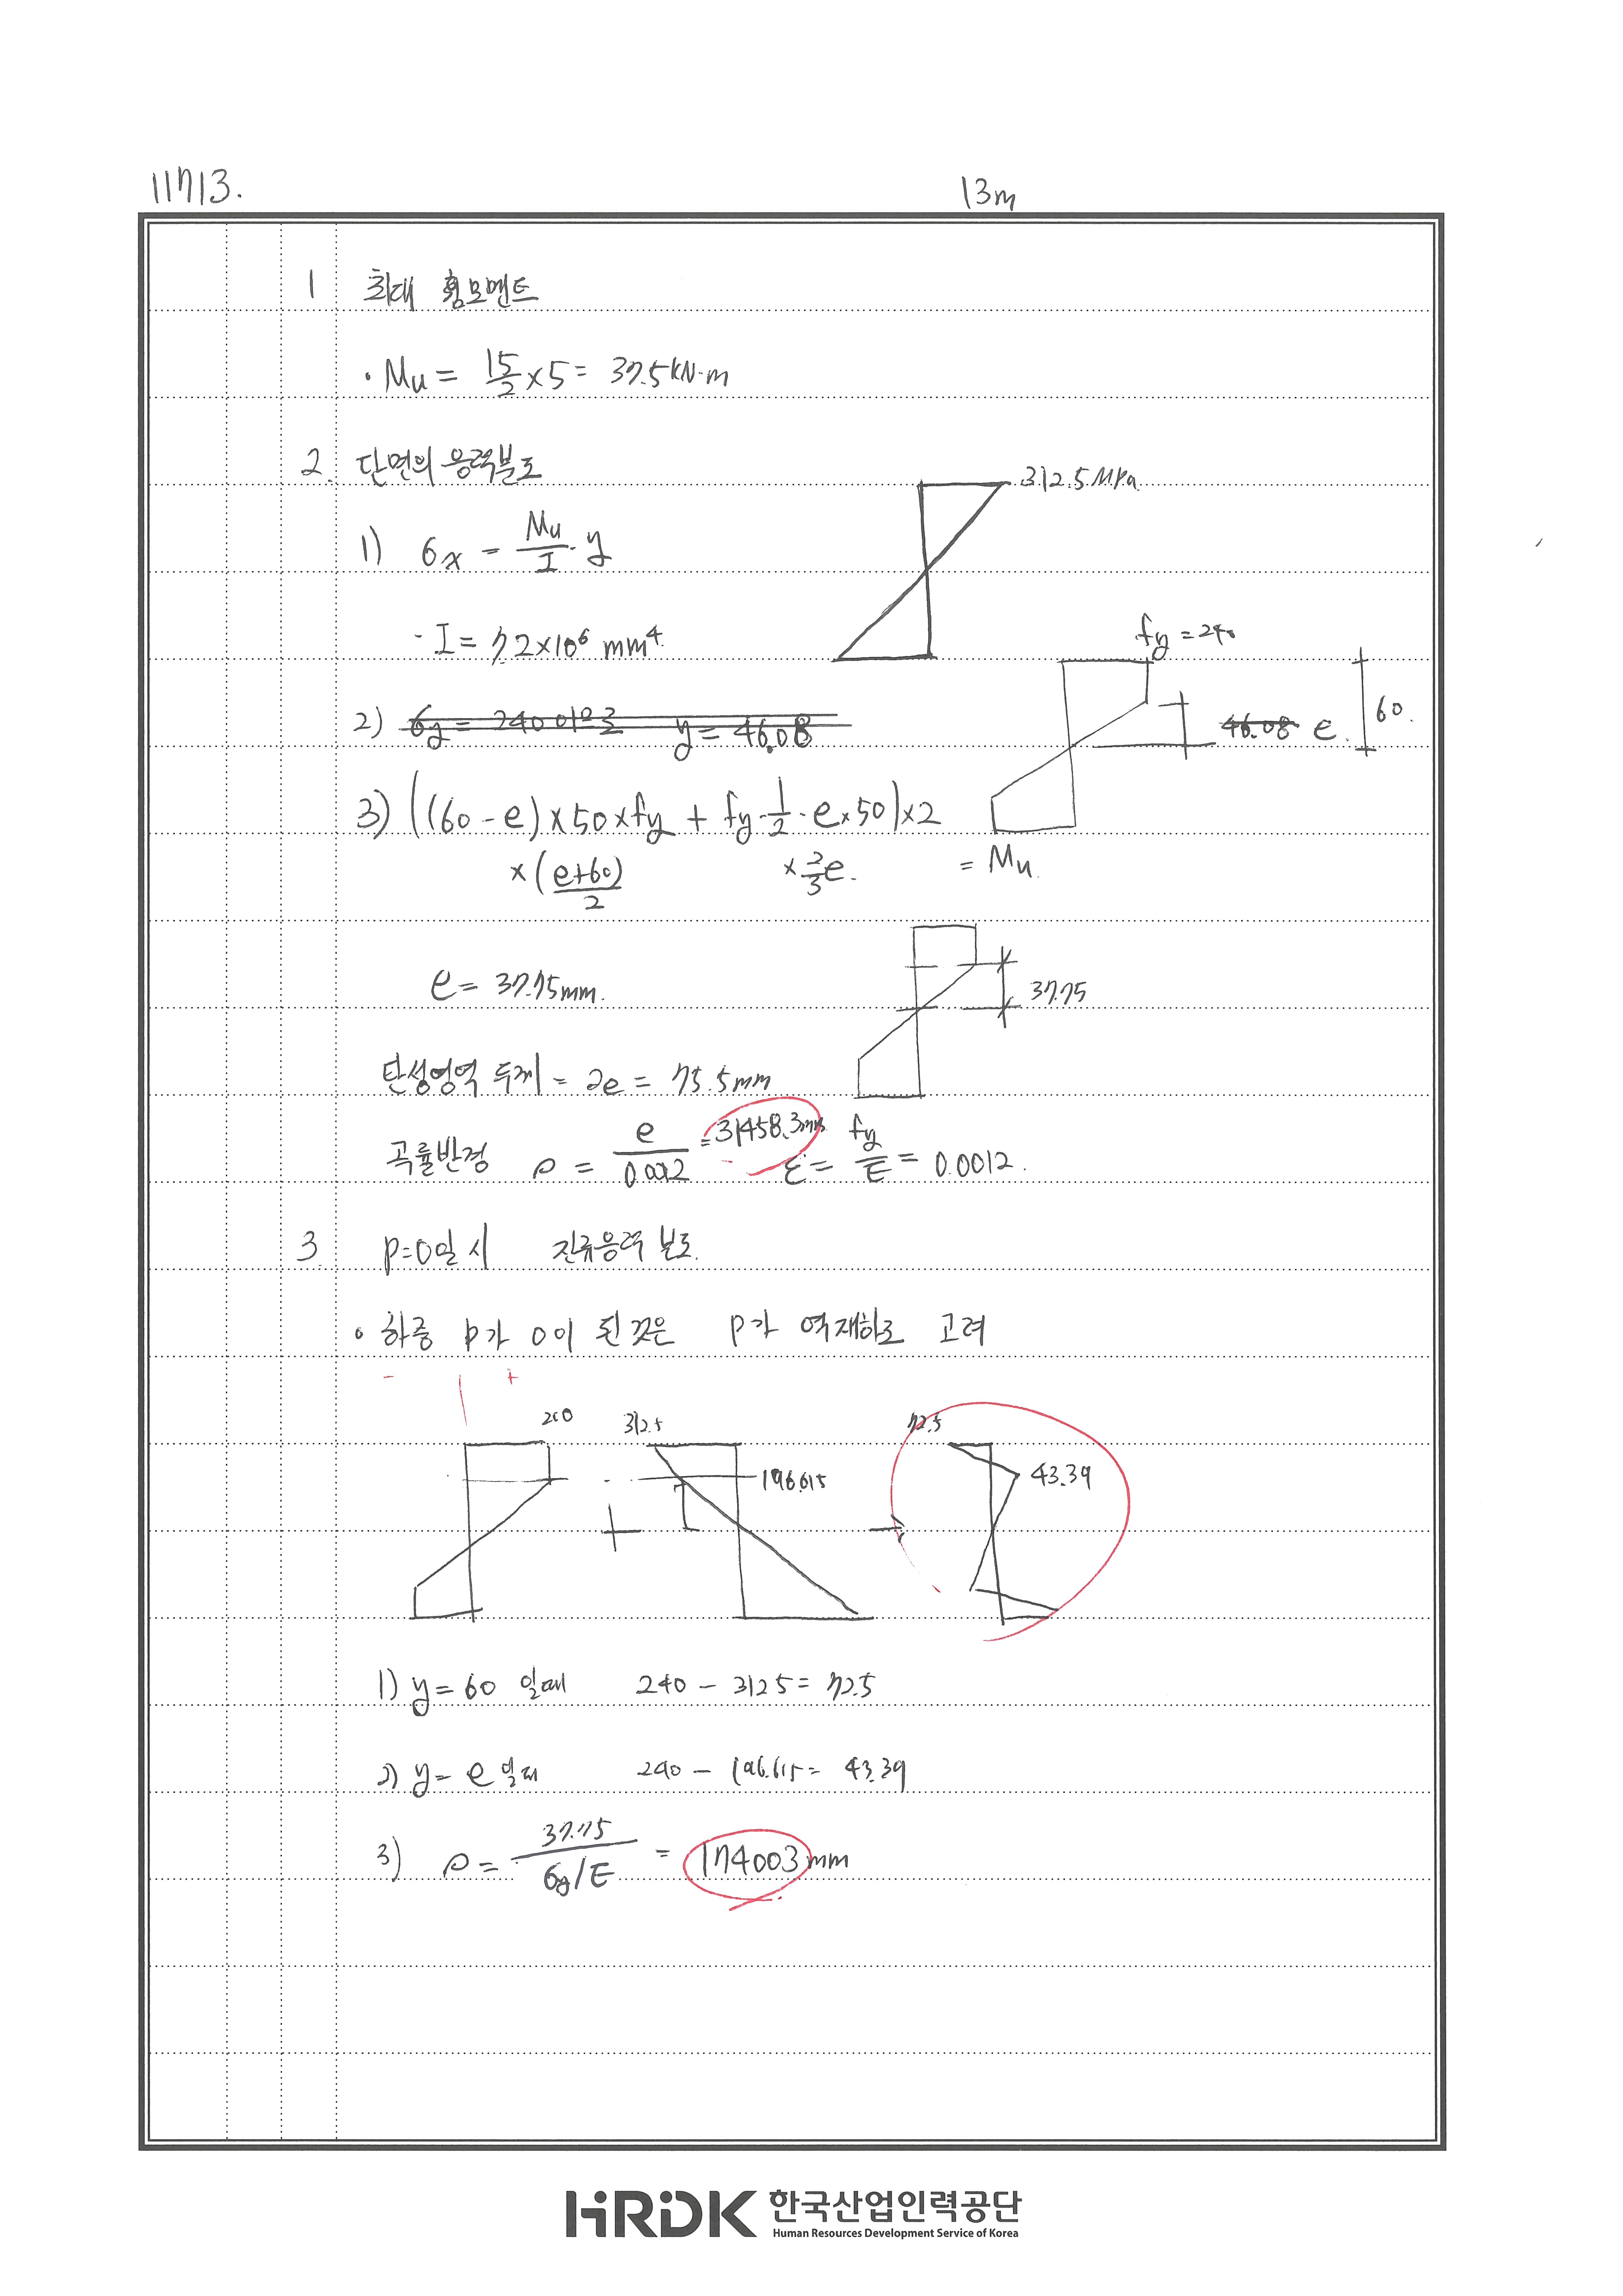 11713.
13m
1 최대 휨모멘트
· Mu = 15/2 × 5 = 37.5 kN·m
2. 단면의 응력분포
312.5 MPa
1) σx = Mu/I · y
- I = 7.2×10⁶ mm⁴
fy = 240
2) σy = 240 y = 46.08
46.08 e.
60.
3) ((60 - e) × 50 × fy + fy · 1/2 · e × 50) × 2
× (e+60)/2 × 2/3 e. = Mu.
e = 37.75mm.
37.75
탄성영역 두께 = 2e = 75.5mm
곡률반경 ρ = e/0.0012 = 31458.3mm ε = fy/E = 0.0012.
3. P=0일 시 잔류응력 분포.
• 하중 P가 0이 된 것은 P가 역재하로 고려
- +
240 312.5 72.5
196.615 43.39
+ →
1) y = 60 일때 240 - 312.5 = 72.5
2) y = e 일때 240 - 196.615 = 43.39
3) ρ = 37.75/σy/E = 174003mm
HRDK 한국산업인력공단
Human Resources Development Service of Korea